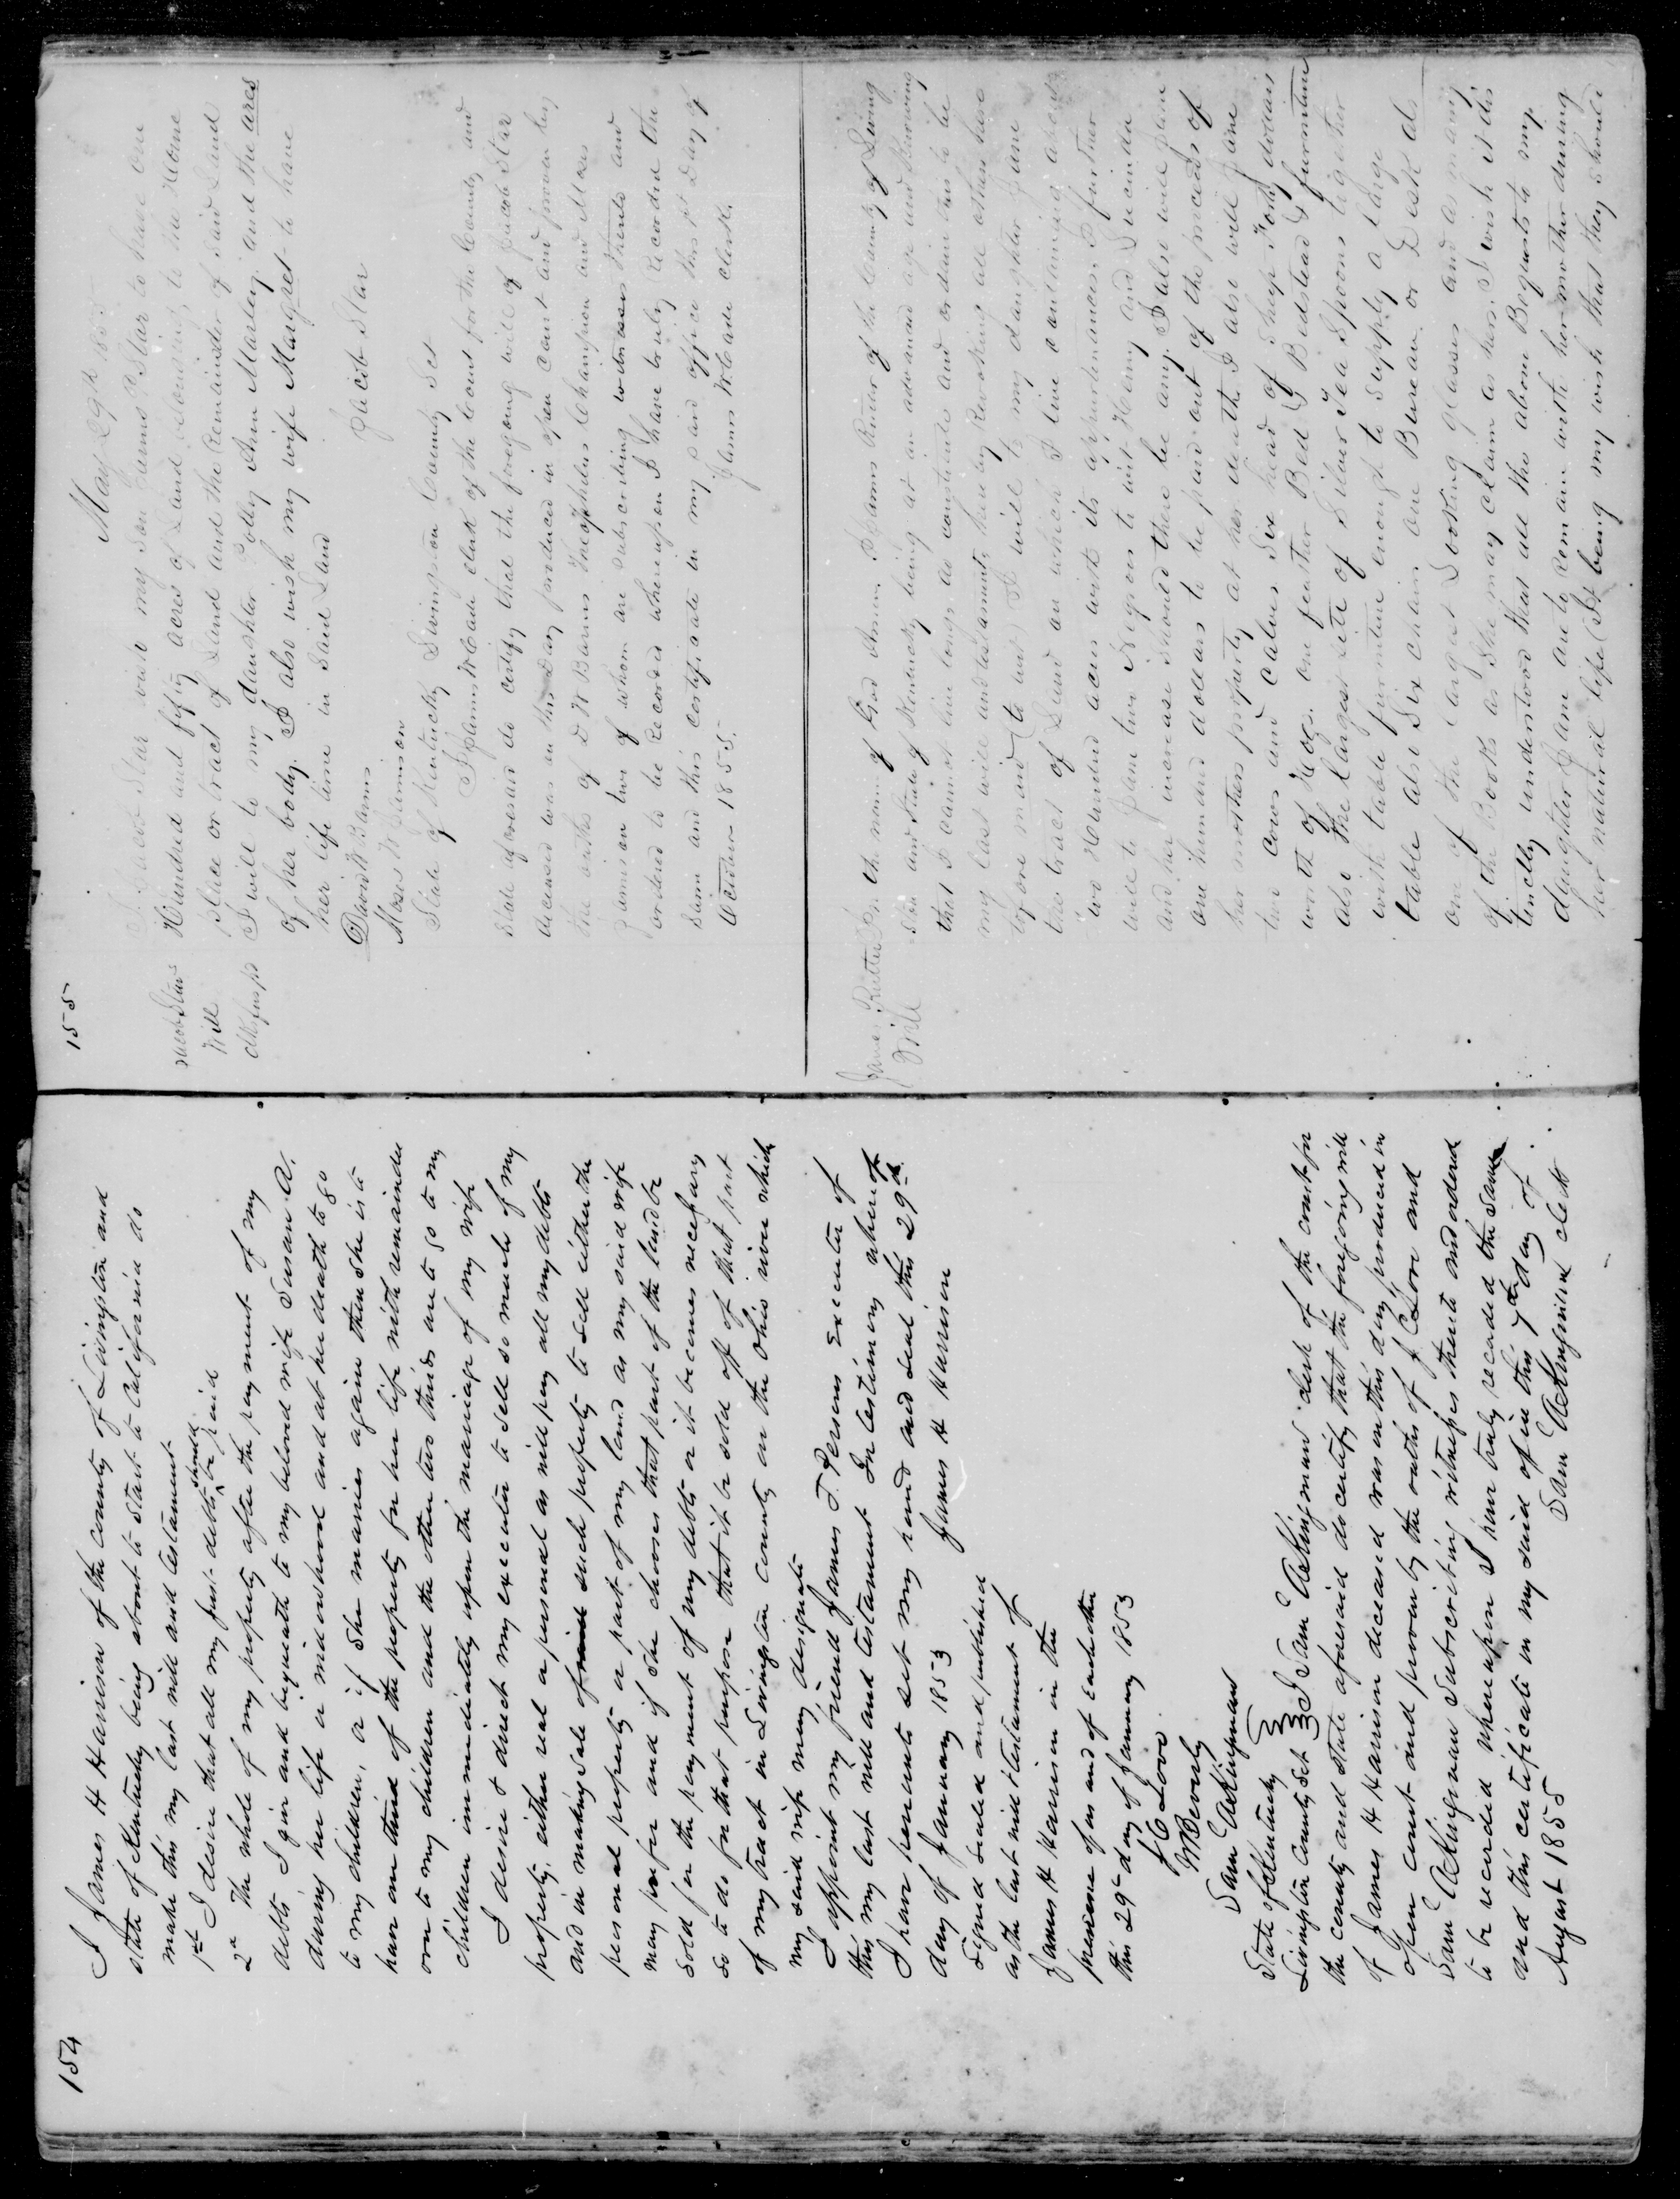 154
I James H Harrison of the county of Livingston and
state of Kentucky being about to start to California do
make this my last will and testament
1st I desire that all my just debts should be paid
2d The whole of my property after the payment of my
debts I give and bequeath to my beloved wife Susan A.
during her life or widowhood and at her death to go
to my children, or if she marries again then she is to
have one third of the property for her life with remainder
over to my children and the other two thirds are to go to my
children immediately upon the marriage of my wife
I desire & direct my executor to sell so much of my
property, either real or personal as will pay all my debts
and in making sale of such property to sell either the
personal property or part of my land as my said wife
may prefer and if she chooses that part of the land be
sold for the payment of my debts or it becomes necessary
so to do for that purpose that it be sold off of that part
of my tract in Livingston county on the Ohio river which
my said wife may designate
I appoint my friend James T. Person executor of
this my last will and testament In testimony whereof
I have hereunto set my hand and seal this 29th
day of January 1853
James H Harrison
Signed sealed and published
as the last will & testament of
James H Harrison in the
presence of us and of each other
this 29th day of January 1853
J C Love
W Beverly
Sam Akingmand
State of Kentucky
Livingston County Sct I Sam clerk of the court for
the county and state aforesaid do certify that the foregoing will
of James H Harrison deceased was on this day produced in
open court and proven by the oaths of J C Love and
Sam subscribing witnesses thereto and ordered
to be recorded whereupon I have truly recorded the same
and this certificate in my said office this 7th day of
August 1855
Sam clerk
155
May 29th 1855
Jacob Star
Will
I Jacob Star wish my son James Star to have one
Hundred and fifty acres of Land belonging to the Home
place or tract of Land and the Remainder of said Land
I will to my daughter Polly Ann Marley and the ares
of her body. I also wish my wife Margret to have
her life time in Said Land
Jacob Star
David W Barns
Moses W Jamison
State of Kentucky Livingston County Sct
I James W Cade clerk of the Court for the County and
State aforesaid do certify that the foregoing will of Jacob Star
deceased was on this Day produced in open Court and proven by
the oaths of D W Barns Theophilus Champion and Moses
Jamison two of whom are subscribing witnesses thereto and
ordered to be Recorded whereupon I have truly Recorded the
same and this certificate in my said office this 1st Day of
October 1855.
James W Cade clerk.
James Rutter
Will
In the name of God Amen. I James Rutter of the County of Living
ston and State of Kentucky being at an advanced age and knowing
that I cannot live long do constitute and ordain this to be
my last will and testament, hereby Revoking all others here
tofore made (to wit) I will to my daughter Jane
the tract of Land on which I live containing about
two Hundred acres with its appurtenances. I further
will to Jane two Negroes to wit Henry and Lucinda
and her increase should there be any. I also will Jane
one thousand dollars to be paid out of the proceeds of
her mothers property at her death I also will Jane
two cows and calves Six head of Sheep Forty dollars
worth of Hogs. one feather Bed & Bedstead & furniture
also the largest sett of Silver Tea Spoons together
with table furniture enough to supply a large
table also Six chairs one Bureau or Desk als
one of the largest Looking glasses and as many
of the Books as She may claim as hers. I wish it dis
tinctly understood that all the above Bequests to my
daughter Jane are to Remain with her mother during
her natural life (It being my wish that they should